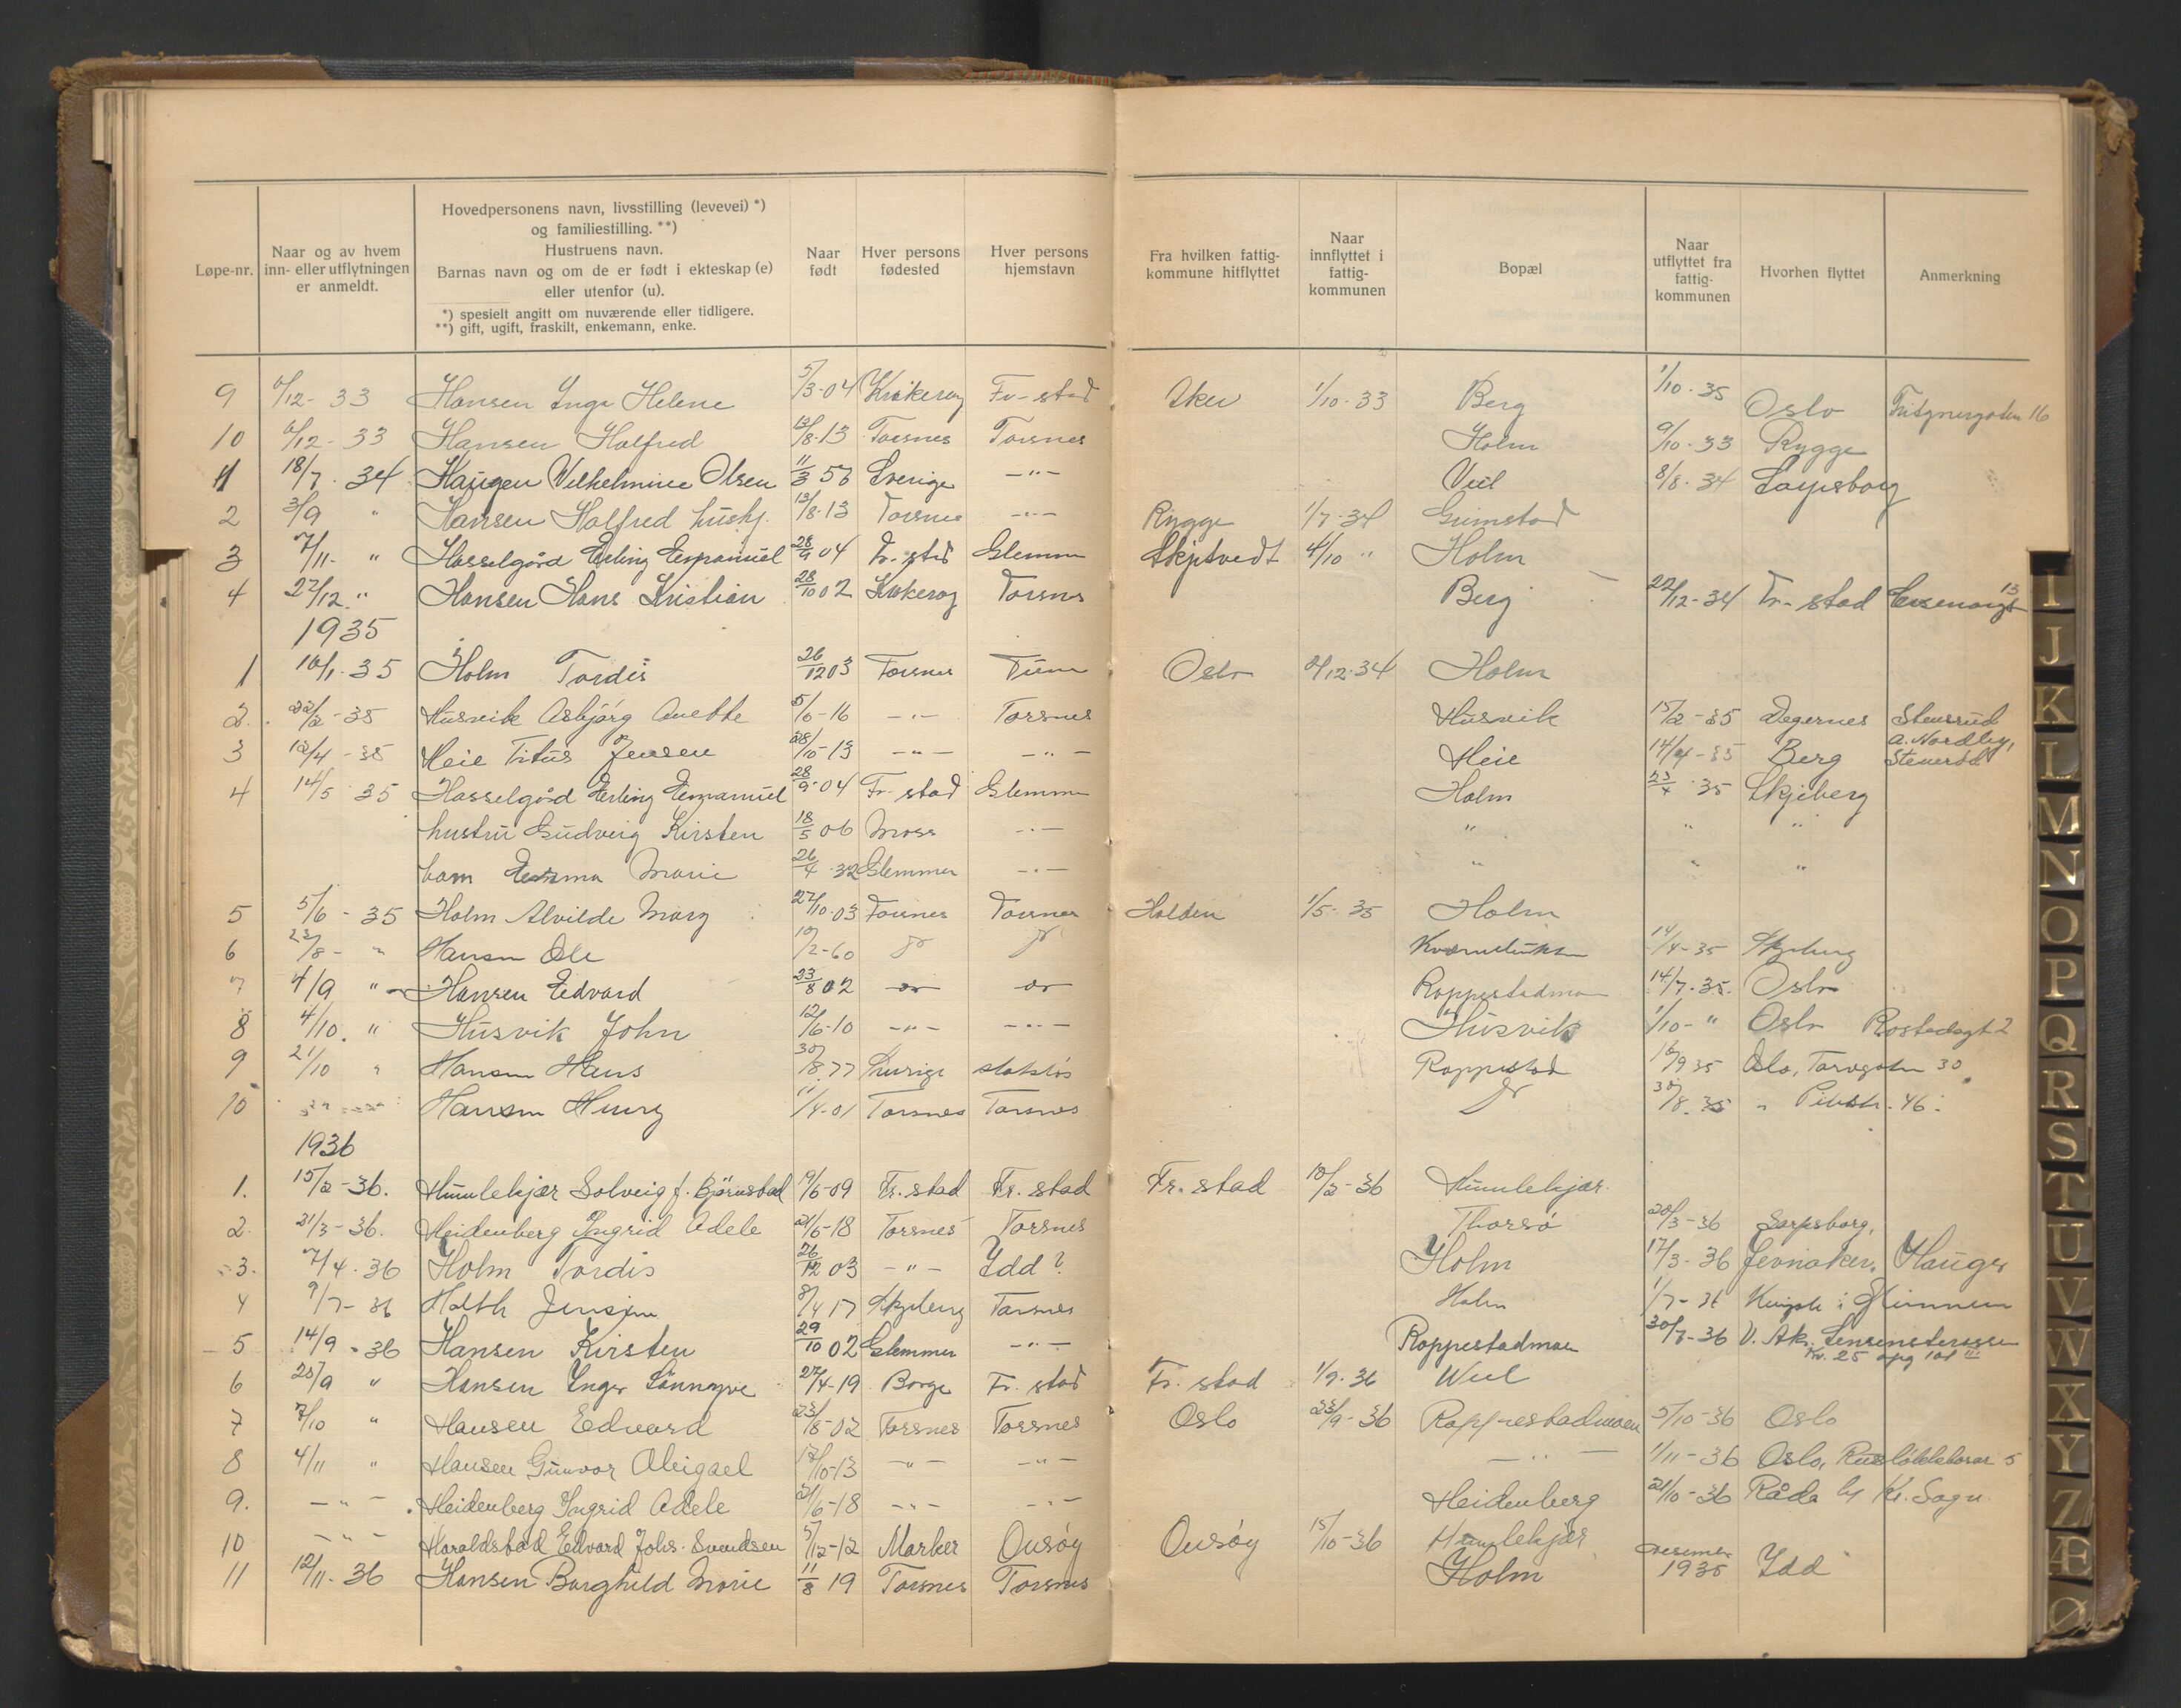 Løpe-nr. | Naar og av hvem inn- eller utflytningen er anmeldt. | Hovedpersonens navn, livsstilling (levevei) *) og familiestilling. **) Hustruens navn. Barnas navn og om de er født i ekteskap (e) eller utenfor (u). *) spesielt angitt om nuværende eller tidligere. **) gift, ugift, fraskilt, enkemann, enke. | Naar født | Hver persons fødested | Hver persons hjemstavn | Fra hvilken fattig-kommune hitflyttet | Naar innflyttet i fattig-kommunen | Bopæl | Naar utflyttet fra fattig-kommunen | Hvorhen flyttet | Anmerkning
9 /12-33 Hansen Inga Helene 5/3-04 Kråkerøy Fr-stad Aker 1/10-33 Berg 1/10-35 Oslo 16
10 /12-33 Hansen Halfred 13/8-13 Torsnes Torsnes Holm 9/10-33 Rygge
11 18/7-34 Haugen Vilhelmine Olsen 11/3 Sverige -"- Viul 8/8-34 Sarpsborg
2 3/9 " Hansen Halfred huskj. 13/8-13 Torsnes -"- Rygge 1/7-34 Grimstad
3 7/11- " Hasselgård Erling Emanuel 28/9 04 Fr. stad Glemmen Skjptvedt 4/10 " Holm
4 27/12 " Hansen Hans Kristian 28/10 02 Kråkerøy Torsnes Berg 22/12-34 Fr-stad 13
1935
1 16/1-35 Holm Tordis 26/12 03 Torsnes Tune Oslo /12-34 Holm
2. 22/2-35 Husvik Asbjørg Anethe 5/6-16 -"- Torsnes Husvik 15/2-35 Degernes Stensrud
3 12/4-35 Heie Titus Jensen 28/10-13 -"- -"- Heie 14/4-35 Berg a. Nordby, Stenerød
4 14/5-35 Hasselgård Erling Emanuel 28/9-04 Fr. stad Glemmen Holm 23/4-35 Skjeberg
hustru Gudveig Kirsten 18/5 06 Moss -"- " " "
barn Emma Marie 26/4-32 Glemmen -"- " " "
5 5/6-35 Holm Alvilde Mary 27/10-03 Torsnes Torsnes Halden 1/5-35 Holm
6 23/8- " Hansen Ole 10/2-60 do do 14/4-35 Skjeberg
7 4/9 " Hansen Edvard 23/8 02 do do Roppestadmoen 14/7-35. Oslo
8 4/10. " Husvik John 12/6-10 -"- -"- Husvik 1/10-" Oslo Rostadsgt 2
9 21/10 " Hansen Hans 30/8.77 Sverige statsløs Roppestad 16/9 35 Oslo, Torvgaten 30
10 Hansen Henry 11/4-01 Torsnes Torsnes do 30/8.35 " Pilestr. 46.
1936
1. 15/2-36. Humlekjær Solveig f. Bjørnstad 19/6-09 Fr. stad Fr. stad Fr. stad 10/2-36 Humlekjær.
2. 21/3-36. Heidenberg Ingrid Adele 21/6-18 Torsnes Torsnes Thorsø 20/3-36 Sarpsborg,
3. 7/4-36 Holm Tordis 26/12 03 -"- Idd? Holm 17/3-36 Jevnaker, Hauger
4 9/7-36 Holth Jensine 8/4 17 Skjeberg Torsnes Holm 1/7-36
5 14/9-36 Hansen Kirsten 29/10 02 Glemmen -"- Roppestadmoen 30/7-36 V. Ak.
25 opg 101 III
6 25/9 " Hansen Inger Sannøve 27/4-19 Borge Fr. stad Fr. stad 1/9-36 Wiul
7 7/10 " Hansen Edvard 23/8-02 Torsnes Torsnes Oslo 23/9-36 Roppestadmoen 5/10-36 Oslo
8 4/11 " Hansen Gunvor Abigael 17/10-13 -"- -"- -"- 1/11-36 Oslo, 5
9. -"- Heidenberg Ingrid Adele 21/6-18 -"- -"- Heidenberg 21/10-36 Råde
10 -"- Haraldstad Edvard Johs. Svendsen 5/12-12 Marker Onsøy Onsøy 15/10-36 Humlekjær
11 12/11-36 Hansen Borghild Marie 11/8 19 Torsnes Torsnes Holm desember 1935 Idd
I
J
K
L
M
N
O
P
Q
R
S
T
U
V
W
X
Y
Z
Æ
Ø